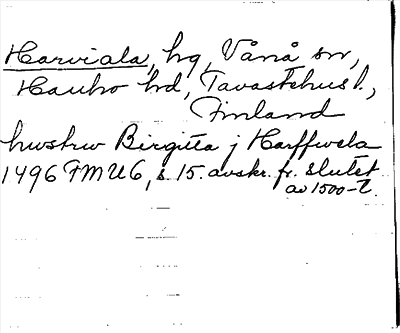 Harviala, hg, Vånå sn,
Hauho hd, Tavastehus l.,
Finland
hustrw Birgitta j Harffwela
1496 FMU 6, s. 15. avskr. fr. slutet
av 1500-t.